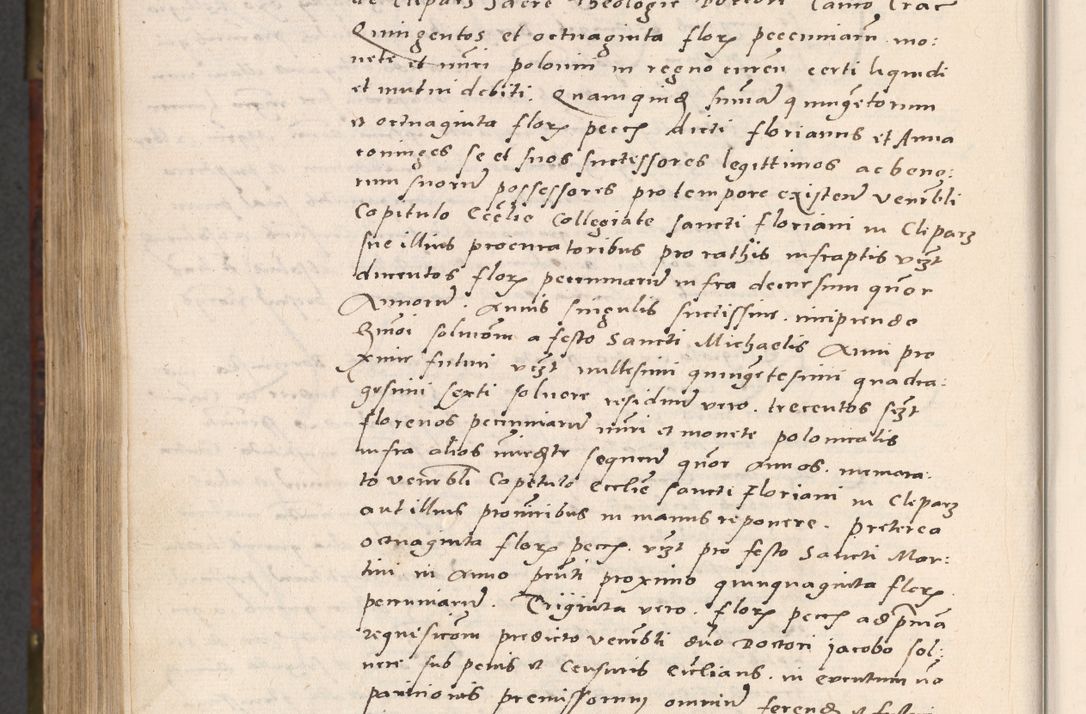 de Clepardz Sacre Theologie Doctori Canco Crac
Quingentos et octuaginta flor pecuniarum mo:
nete et nūri polonici in regno curen certi liquidi
et mutui debiti. Quamquid summā quingētorum
et octuaginta flor pecc dicti florianus et Anna
coniuges se et suos successores legittimos ac bono:
rum suorum possessores pro tempore existen venerbli
Capitulo Ecclie Collegiate sancti floriani in Cleparz
sue illius procuratoribus pro rathis infraptis vzt
ducentos flor pecuniarum infra decursum quor
Annorum. Annis singulis successiue. incipiendo
hmoi solucom a festo Sancti Michaelis Anni pro
xime futuri vzt millesimi quingētesimi quadra:
gesimi sexti soluere residuum vero. trecentos szt
florenos pecuniarum nūri et monete polonicalis
infra alios sequen quor annos. memora:
to venerbli Capitulo Ecclie sancti Floriani in Cleparz
aut illius procuribus in manus reponere. Preterea
octuaginta flor pecc. vzt pro festo Sancti Mar:
tini in Anno pnti proximo quinquaginta flor
pecuniarum. Triginta vero. flor pecc ad primā
requisicom predicto venerbli dno Doctori iacobo sol:
uere sub penis et Censuris Ecclians. in euentum no
paricionis premissorum omnium ferend et